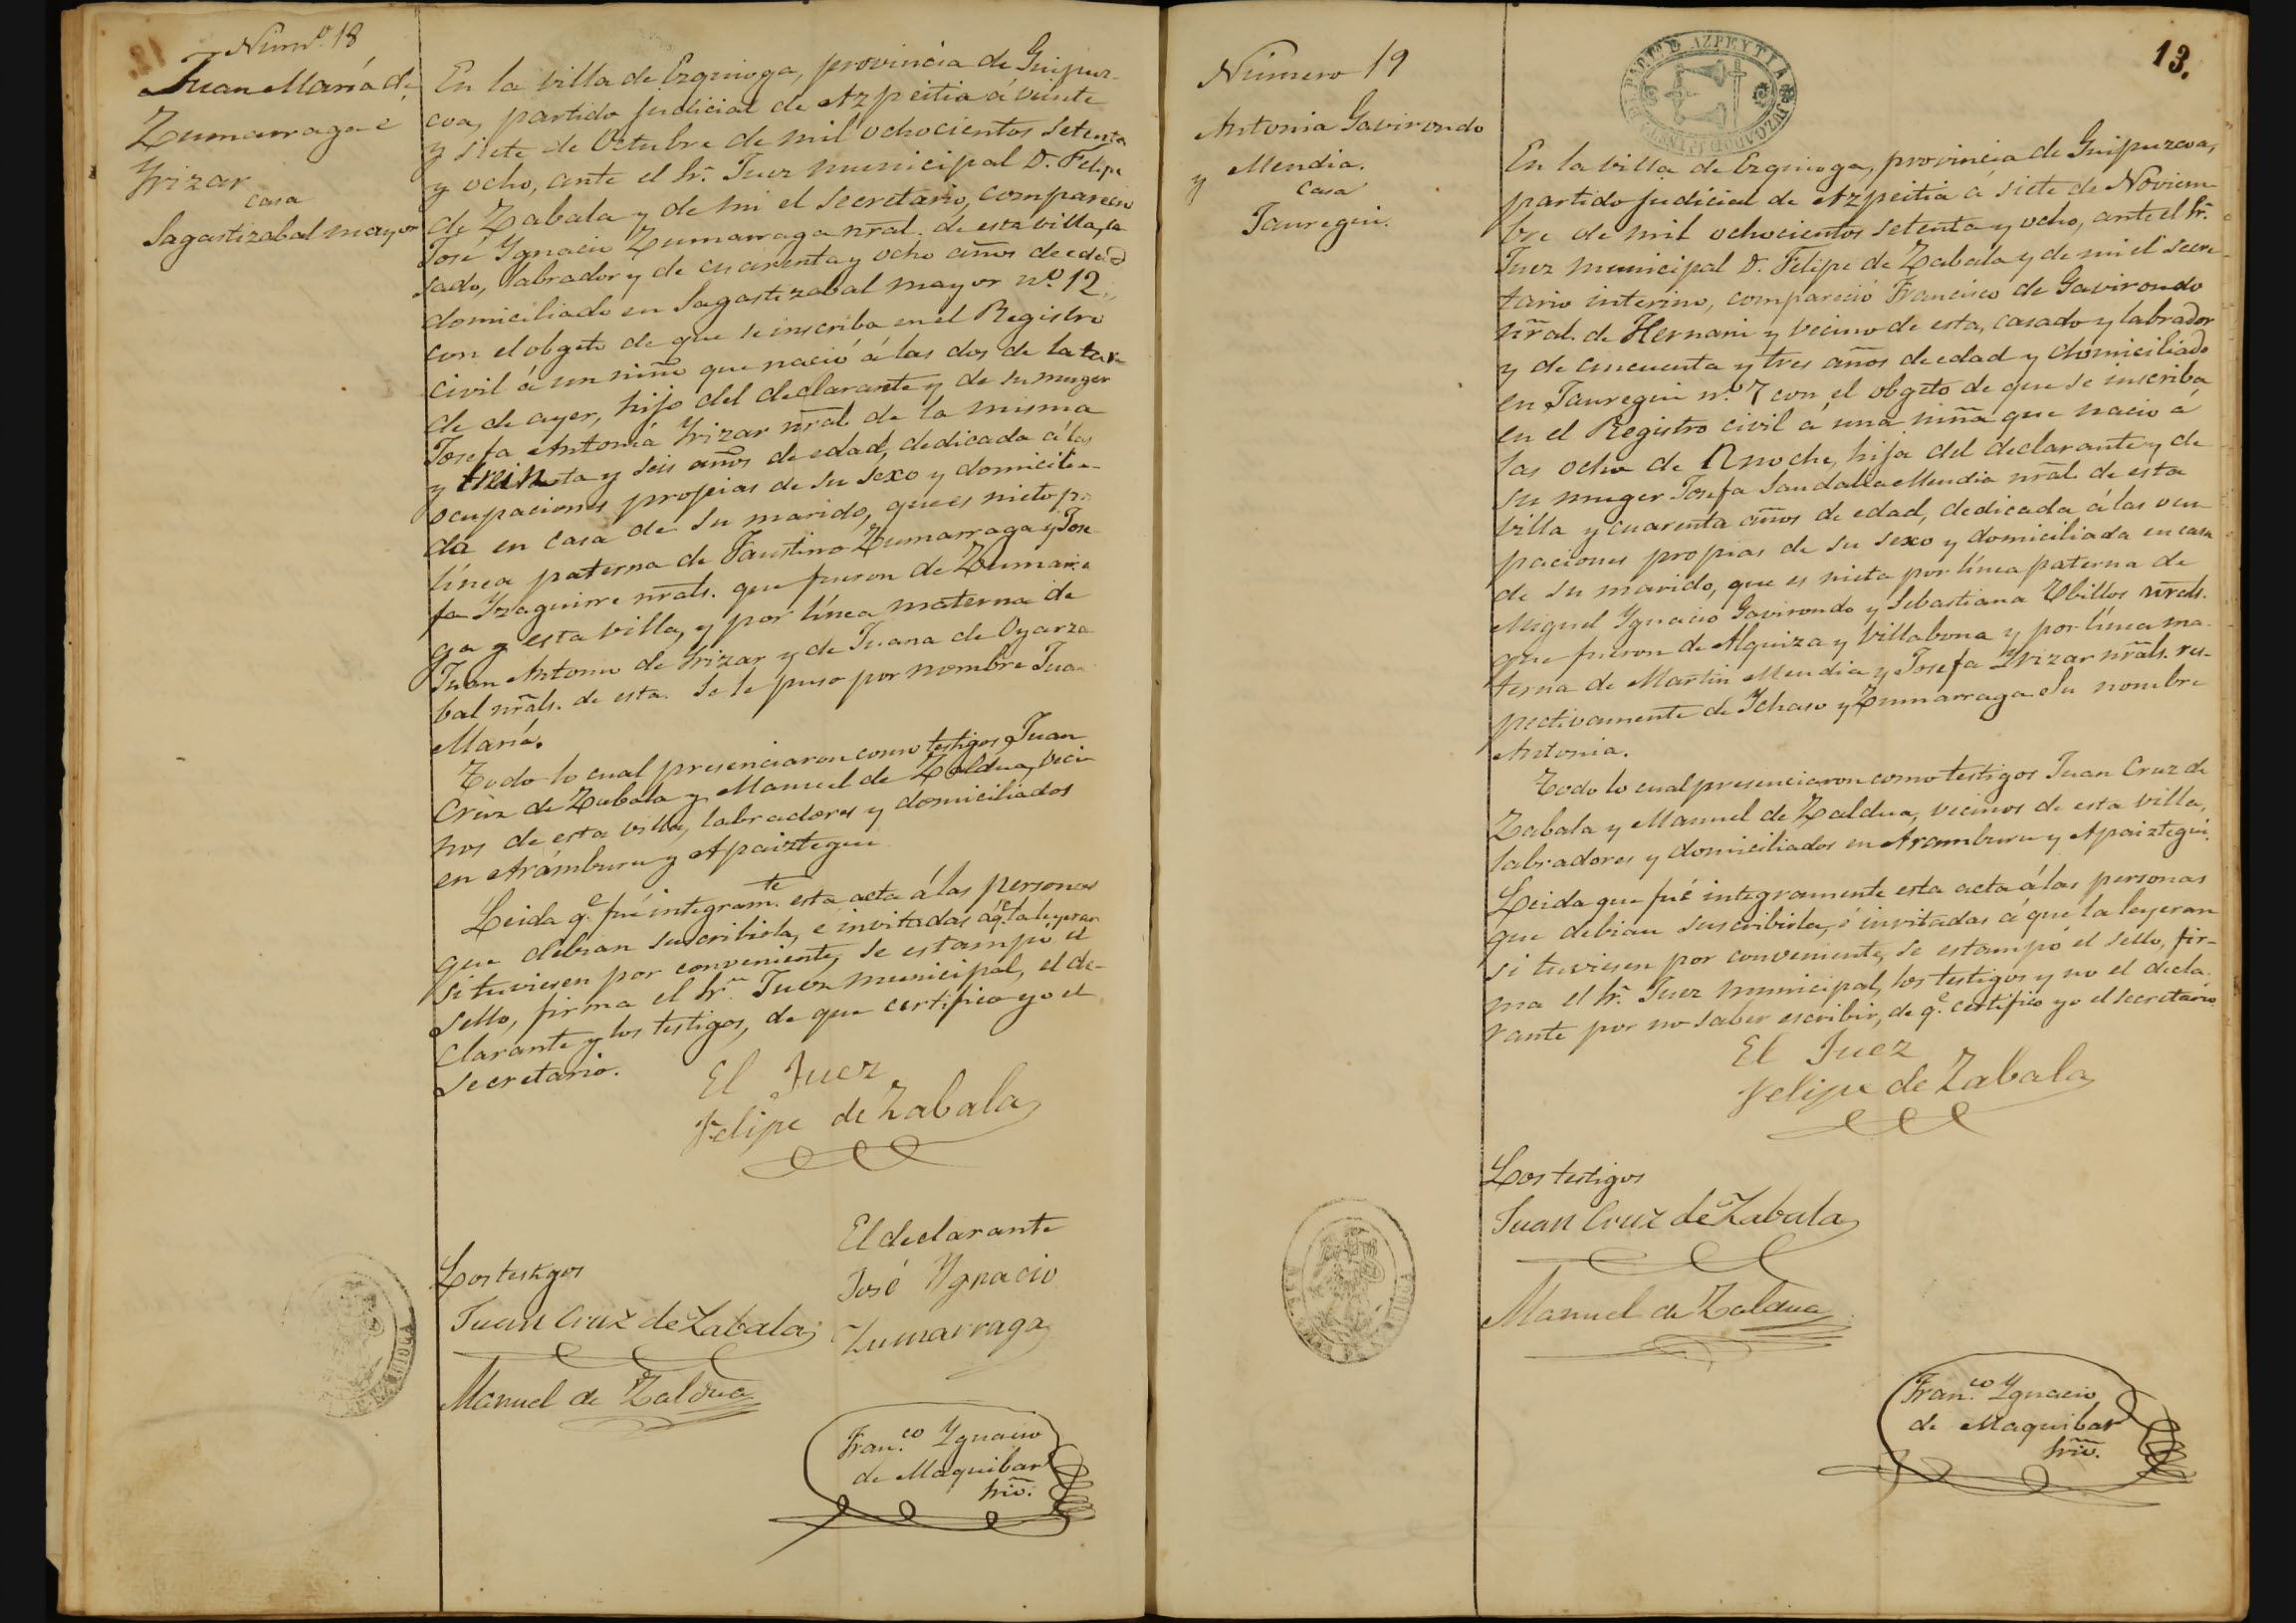 Númº. 18
Juan María de
Zumarraga é
Yrizar
casa
Sagastizabal mayor
En la villa de Ezquioga, provincia de Guipuz-
coa, partido judicial de Azpeitia á veinte
y siete de Octubre de mil ochocientos setenta
y ocho, ante el Sr. Juez municipal D. Felipe
de Zabala y de mi el Secretario, compareció
José Ygnacio Zumarraga nral. de esta villa, ca
sado, labrador y de cuarenta y ocho años de edad
domiciliado en Sagastizabal mayor nº. 12
con el obgeto de que se inscriba en el Registro
civil á un niño que nació á las dos de la tar
de de ayer, hijo del declarante y de su muger
Josefa Antonia Yrizar nral de la misma
y treinta y seis años de edad, dedicada á las
ocupaciones propias de su sexo y domicilia-
da en casa de su marido, que es nieto por
línea paterna de Faustino Zumarraga y Jose
fa Yzaguirre nrals. que fueron de Zumarra
ga y esta villa, y por línea materna de
Juan Antonio de Yrizar y de Juana de Oyarza
bal nrals. de esta. Se le puso por nombre Juan
María.
Todo lo cual presenciaron como testigos Juan
Cruz de Zabala y Manuel de Zaldua, veci
nos de esta villa, labradores y domiciliados
en Arámburu y Apaiztegui
Leida qe. fué integramte. esta acta á las personas
que debian suscribirla, é invitadas á qe. la leyeran
si tuviesen por conveniente, se estampó el
sello, firma el Sr. Juez municipal, el de-
clarante y los testigos, de que certifico yo el
Secretario.
El Juez
Felipe de Zabala
El declarante
José Ygnacio
Zumarraga
Los testigos
Juan Cruz de Zabala
Manuel de Zaldua
Fran.co Ygnacio
de Maquibar
Srio.
13.
AZPEYTIA
Número 19
Antonia Gavirondo
y Mendia.
casa
Jauregui.
En la villa de Ezquioga, provincia de Guipuzcoa,
partido judicial de Azpeitia á siete de Noviem
bre de mil ochocientos setenta y ocho, ante el Sr.
Juez municipal D. Felipe de Zabala y de mi el Secre
tario interino, compareció Francisco de Gavirondo
nral. de Hernani y vecino de esta, casado y labrador
y de cincuenta y tres años de edad y domiciliado
en Jauregui nº. 7 con el obgeto de que se inscriba
en el Registro civil á una niña que nació á
las ocho de Anoche, hija del declarante y de
su muger Josefa Sandalia Mendia nral. de esta
villa y cuarenta años de edad, dedicada á las ocu
paciones propias de su sexo y domiciliada en casa
de su marido, que es nieta por línea paterna de
Miguel Ygnacio Gavirondo y Sebastiana Ubillos nrals.
que fueron de Alquiza y Villabona y por línea ma-
terna de Martin Mendia y Josefa Yrizar nrals. res-
pectivamente de Ychaso y Zumarraga. Su nombre
Antonia.
Todo lo cual presenciaron como testigos Juan Cruz de
Zabala y Manuel de Zaldua, vecinos de esta villa,
labradores y domiciliados en Aramburu y Apaiztegui.
Leida que fué integramente esta acta á las personas
que debian suscribirla, é invitadas á que la leyeran
si tuviesen por conveniente, se estampó el sello, fir-
ma el Sr. Juez municipal, los testigos y no el decla-
rante por no saber escribir, de qe. certifico yo el Secretario.
El Juez
Felipe de Zabala
Los testigos
Juan Cruz de Zabala
Manuel de Zaldua
Fran.co Ygnacio
de Maquibar
Srio.